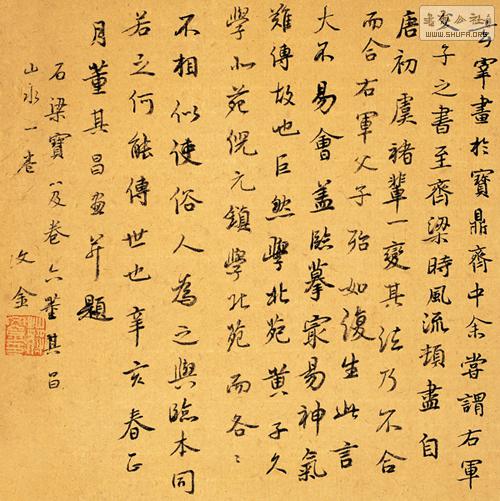 玄宰畫於寶鼎齋中余嘗謂右軍
父子之書至齊梁時風流頓盡自
唐初虞褚輩一變其法乃不合
而合右軍父子殆如復生此言
大不易會蓋臨摹最易神氣
難傳故也巨然學北苑黃子久
學北苑倪元鎮學北苑而各〻
不相似使俗人為之與臨本同
若之何能傳世也辛亥春正
月董其昌畫并題
石梁寶笈卷六董其昌
山水一卷
金
WWW.SHUFA.ORG